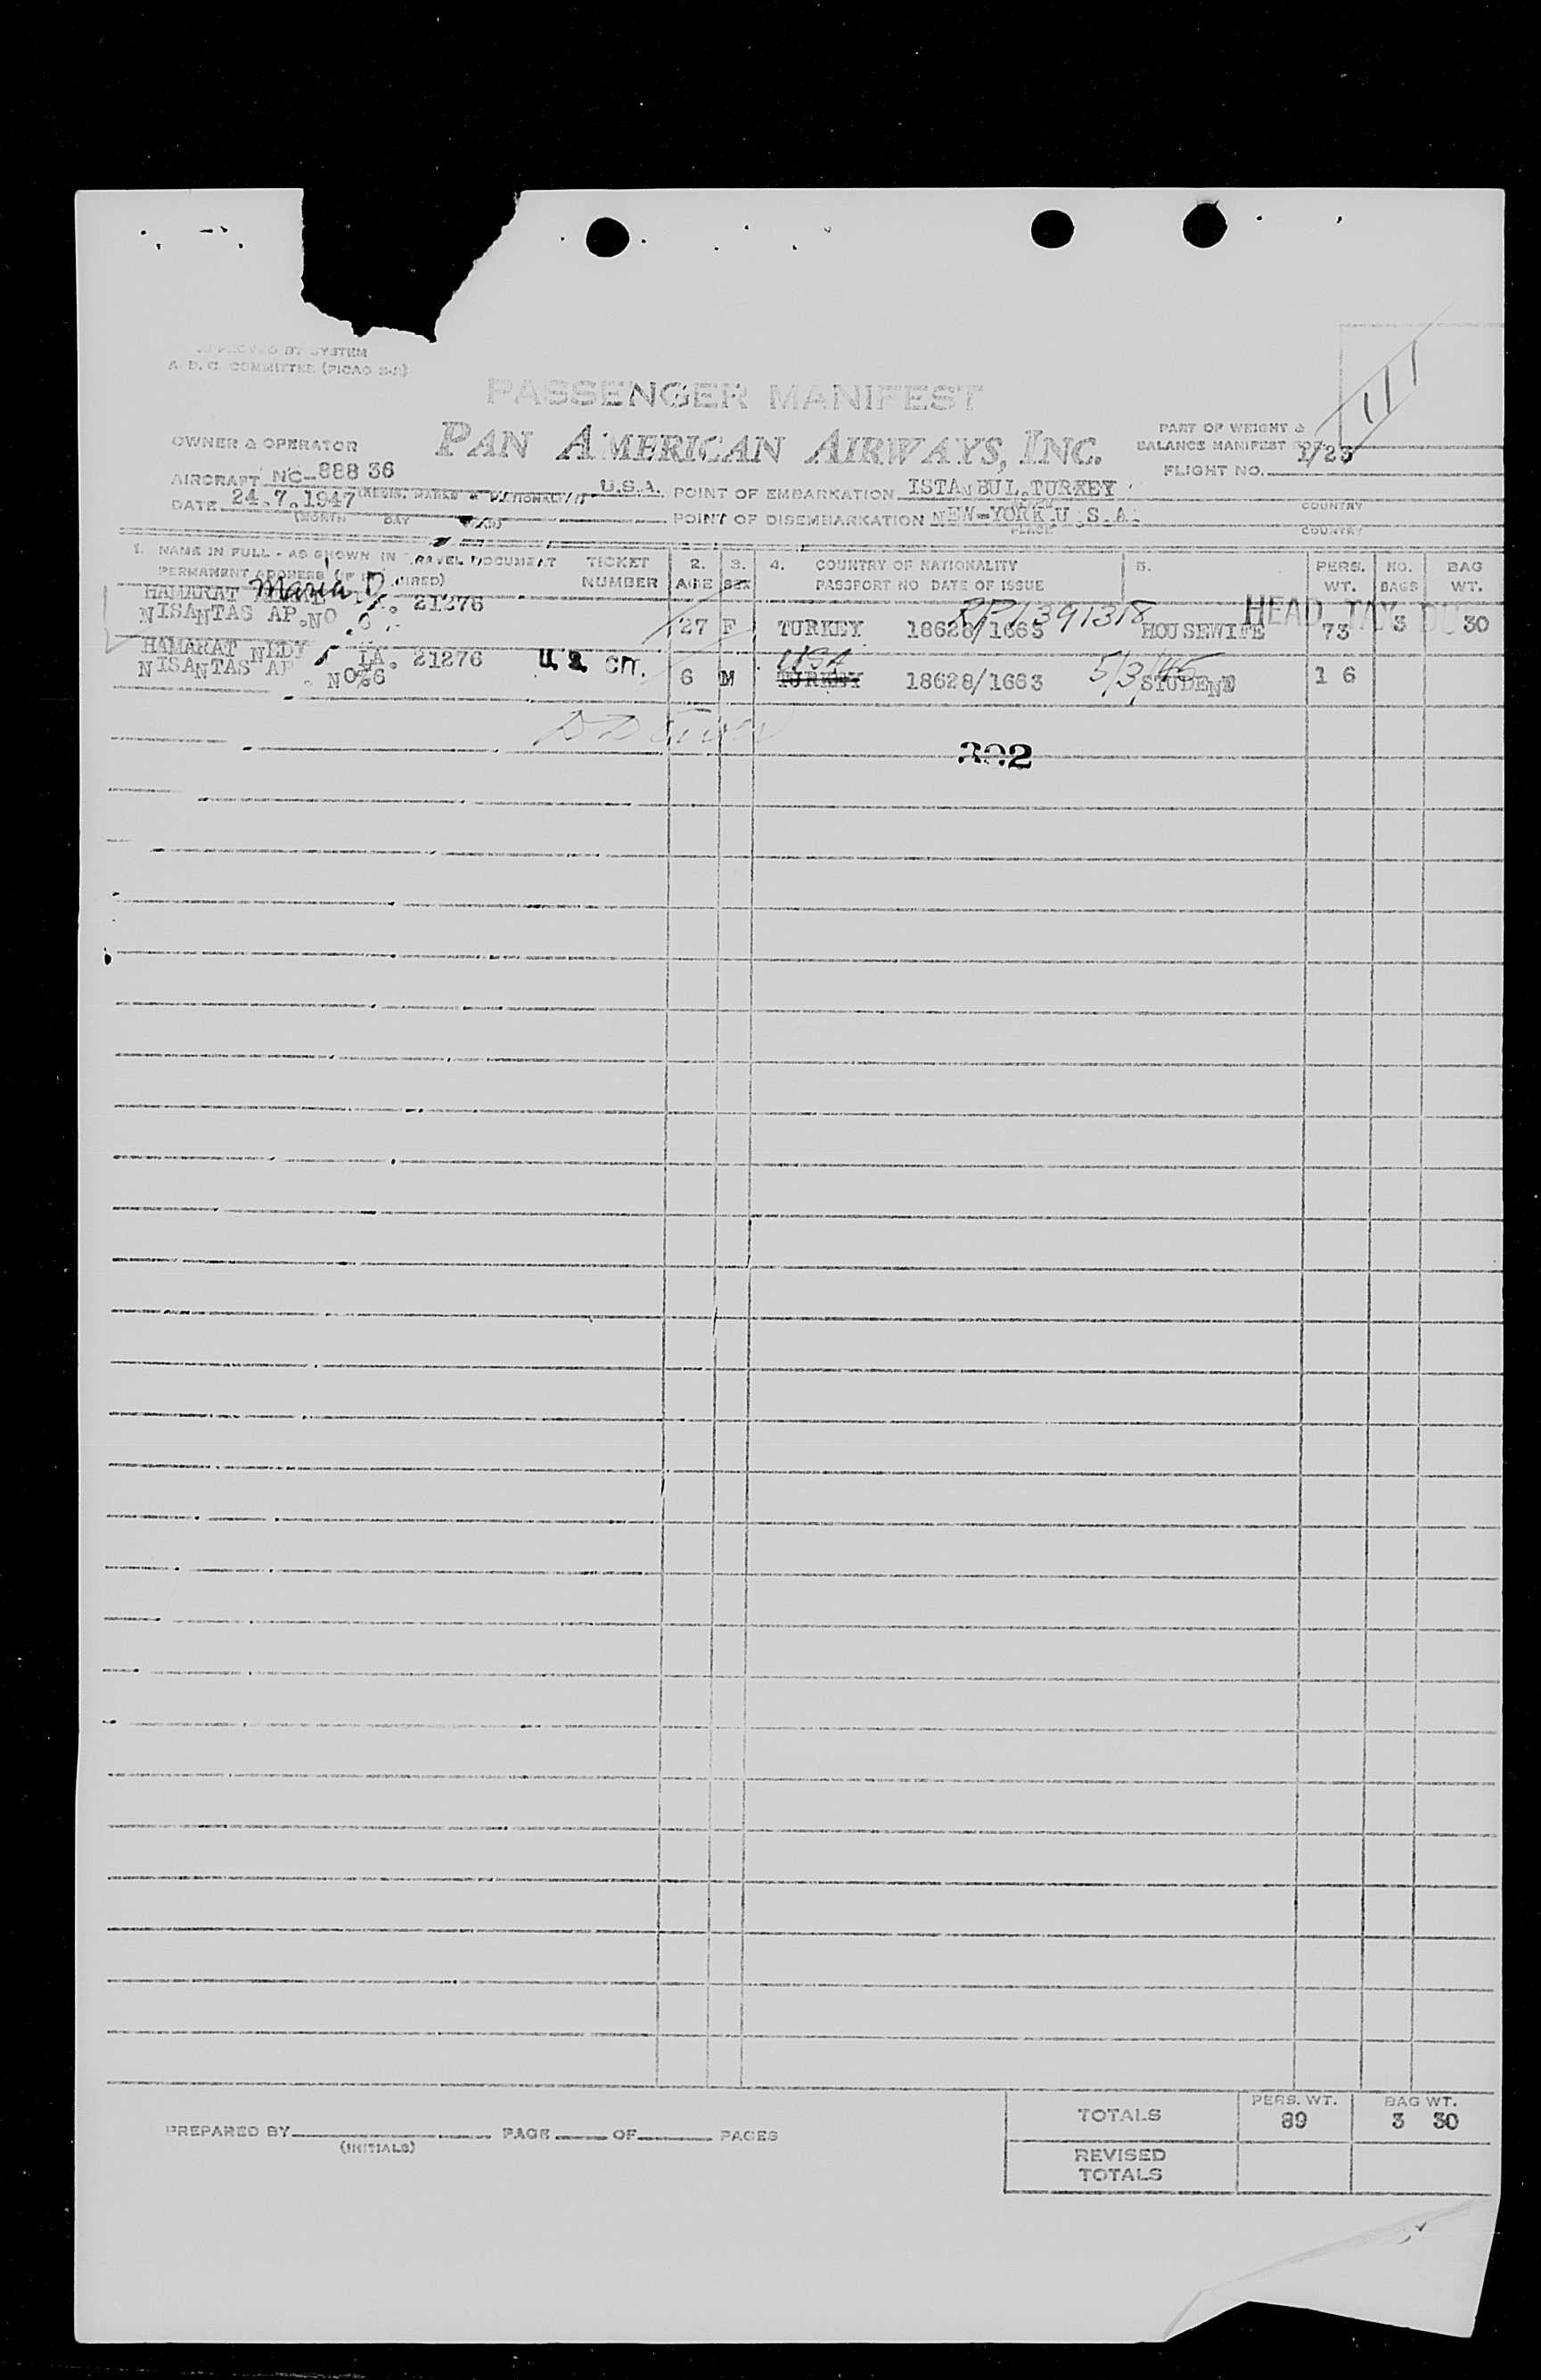 APPROVED BY SYSTEM
A. D. C. COMMITTEE (PICAO
111
PASSENGER MANIFEST
OWNER & OPERATOR
PAN AMERICAN AIRWAYS, INC.
PART OF WEIGHT &
BALANCE MANIFEST FOR
FLIGHT NO. 1/23
AIRCRAFT NC-888 36 U.S.A. POINT OF EMBARKATION ISTANBUL.TURKEY
DATE 24.7.1947 COUNTRY
(MONTH DAY YEAR) POINT OF DISEMBARKATION NEW-YORK.U.S.A.
PLACE COUNTRY
1. NAME IN FULL - AS SHOWN IN TRAVEL DOCUMENT TICKET 2. 3. 4. COUNTRY OF NATIONALITY 5. PERS. NO. BAG
PERMANENT ADDRESS (IF REQUIRED) NUMBER AGE SEX PASSPORT NO DATE OF ISSUE WT. BAGS WT.
HAMARAT Maria D. 21276 RP1391318 HEAD TAX DU
NISANTAS AP.NO 27 F TURKEY 18628/1663 HOUSEWIFE 73 3 30
HAMARAT 21276 U.S. Cit. USA 5/3/45
NISANTAS AP. NO%6 6 M TURKEY 18628/1663 STUDENE 16
302
TOTALS PERS. WT. BAG WT.
89 3 30
PREPARED BY PAGE OF PAGES
(INITIALS)
REVISED
TOTALS